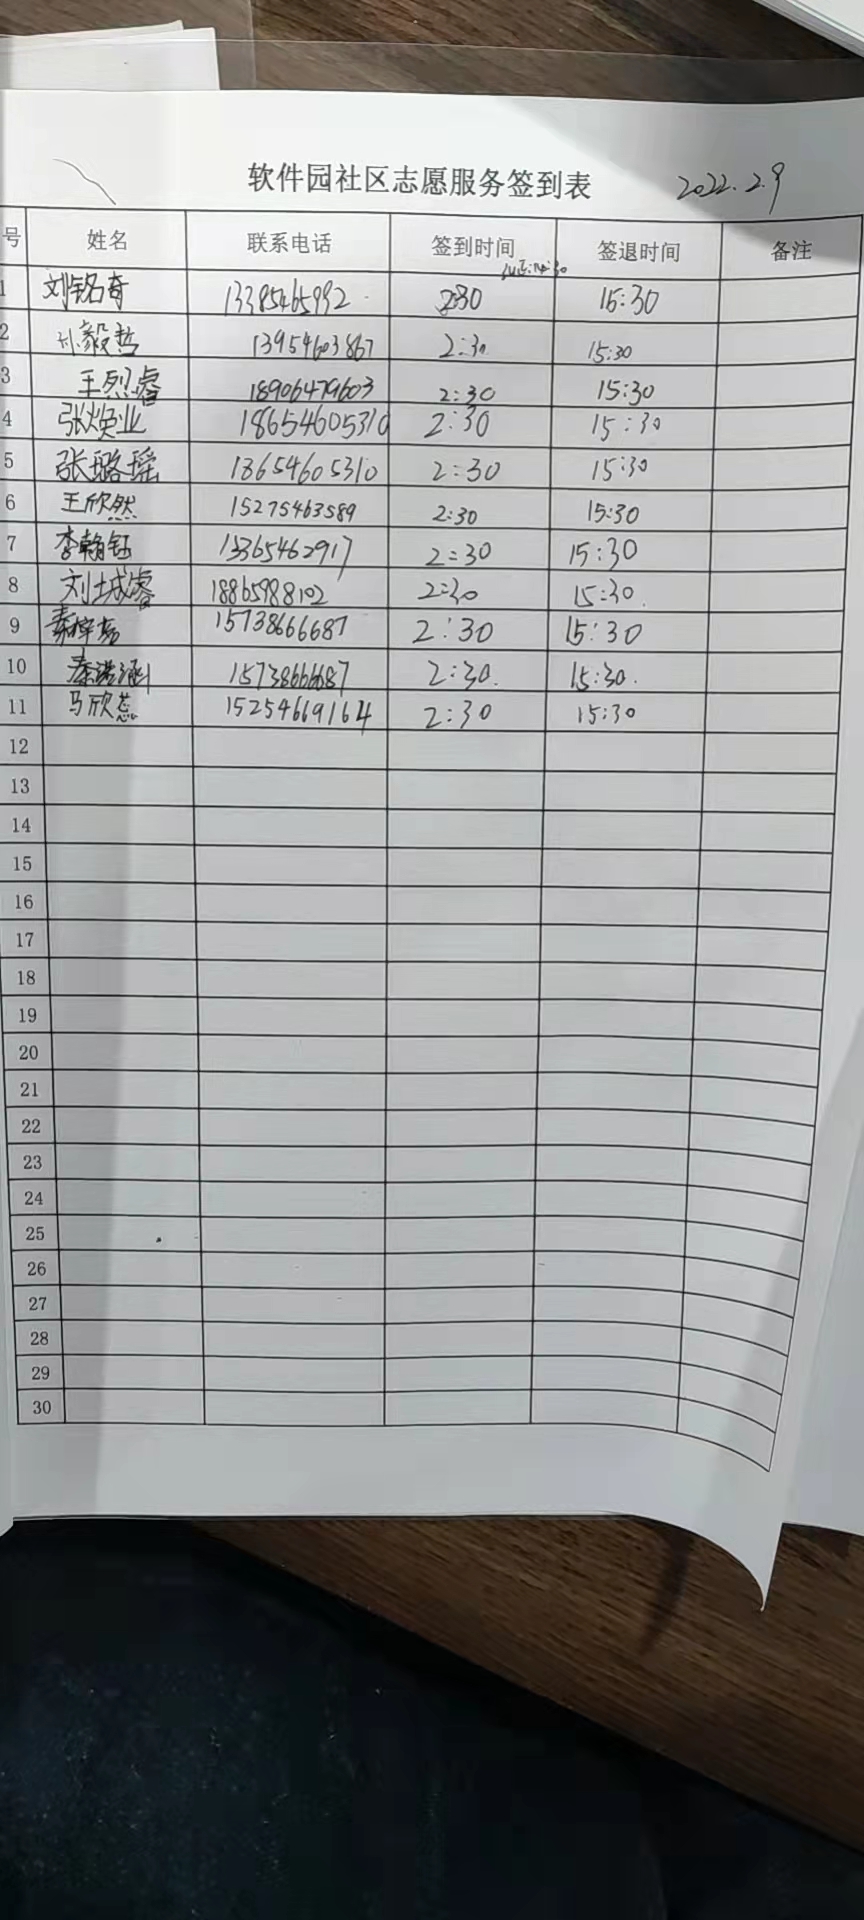 软件园社区志愿服务签到表 2022.2.9
号 姓名 联系电话 签到时间 签退时间 备注
1 刘铭奇 13385465992 2:30 15:30
2 毅哲 13954603867 2:30 15:30
3 王烈睿 18906479603 2:30 15:30
4 张焕业 18654605310 2:30 15:30
5 张璐瑶 18654605310 2:30 15:30
6 王欣然 15275463589 2:30 15:30
7 李翰钰 13365462917 2:30 15:30
8 刘城睿 18865988102 2:30 15:30.
9 秦梓 15738666687 2:30 15:30
10 秦诺涵 15738666687 2:30. 15:30.
11 马欣蕊 15254669164 2:30 15:30
12
13
14
15
16
17
18
19
20
21
22
23
24
25
26
27
28
29
30